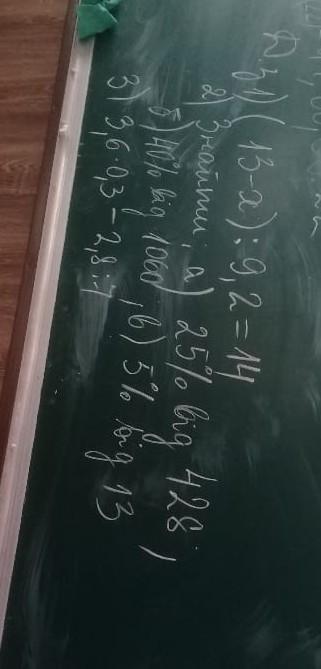 Д.з 1) (13-x):9,2=14
2) Знайти; а) 25% від 428;
б) 40% від 1060, в) 5% від 13
3) 3,6·0,3-2,8:7